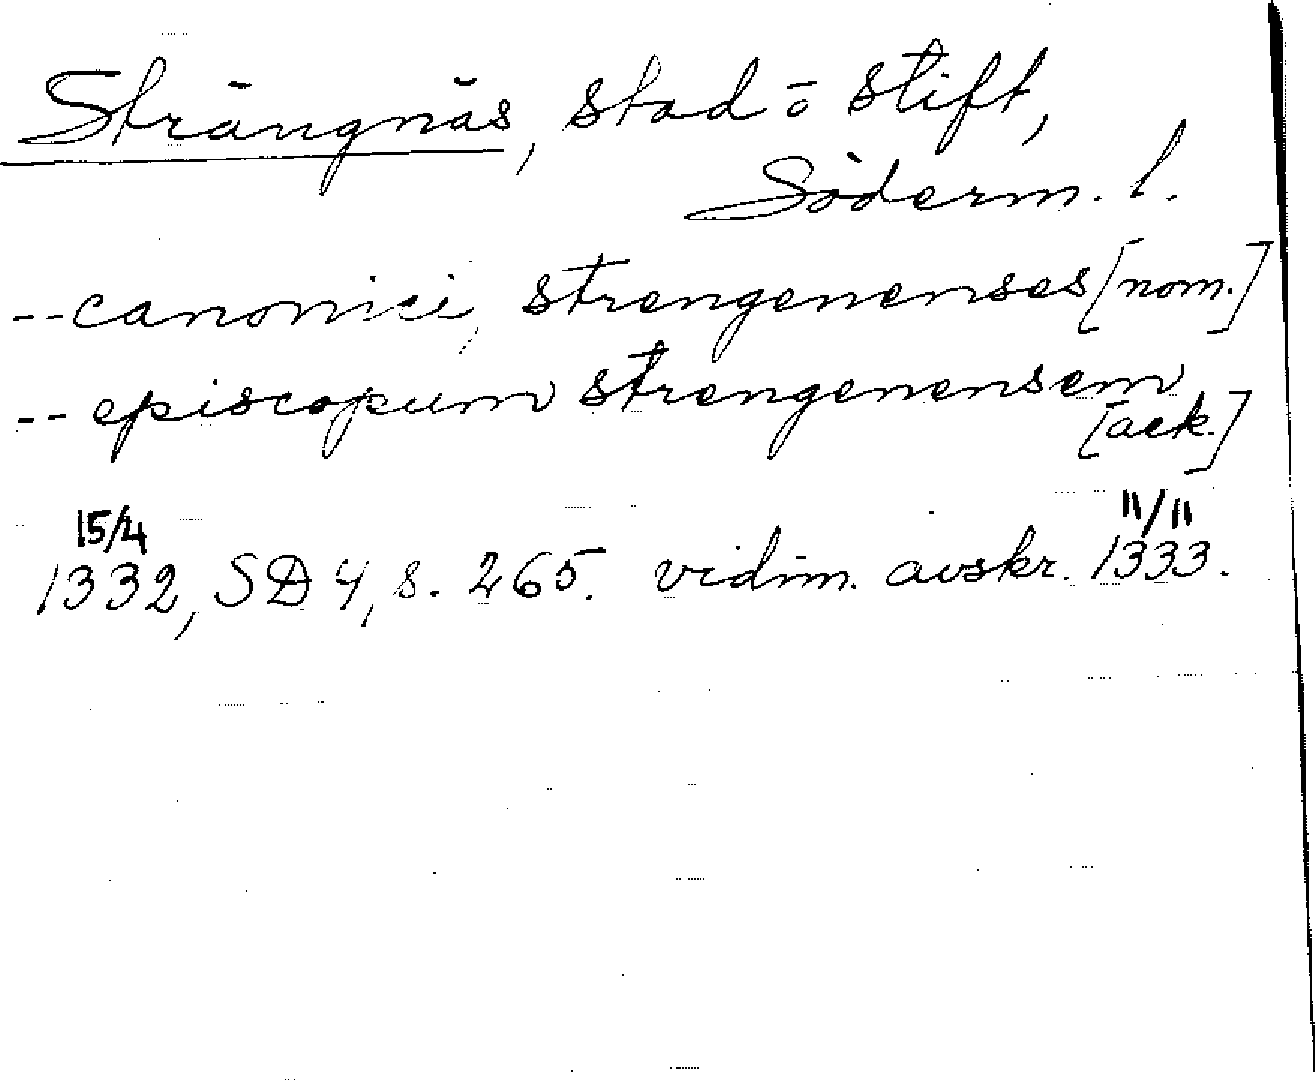 Strängnäs, stad ō stift,
Söderm. l.
-- canonici, strengenenses [nom.]
-- episcopum strengenensem
[ack.]
15/4 11/11
1332, SD 4, s. 265. vidim. avskr. 1333.